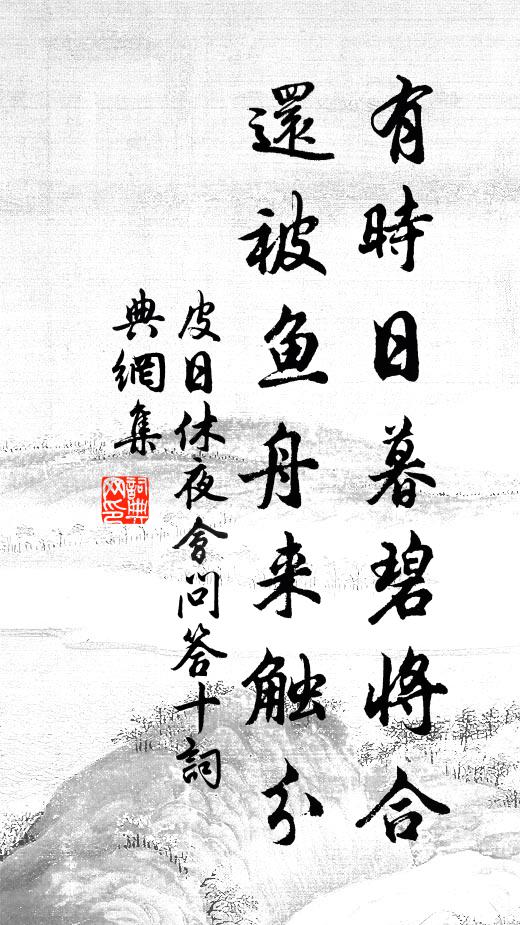 有時日暮碧將合
還被鱼舟来触分
皮日休夜會问答十詞
典網集
詞典
网印